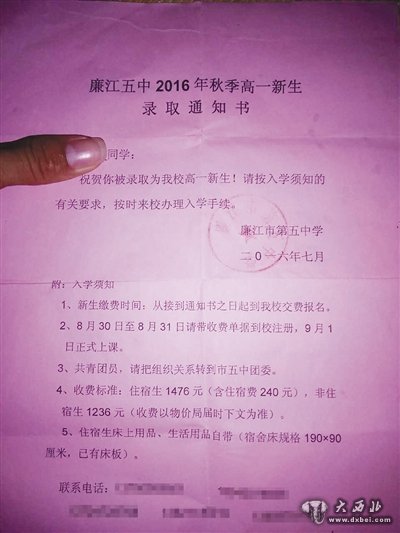 廉江五中 2016 年秋季高一新生
录取通知书
同学：
祝贺你被录取为我校高一新生！请按入学须知的
有关要求，按时来校办理入学手续。
廉江市第五中学
二0一六年七月
附：入学须知
1、新生缴费时间：从接到通知书之日起到我校交费报名。
2、8 月 30 日至 8 月 31 日请带收费单据到校注册，9 月 1
日正式上课。
3、共青团员，请把组织关系转到市五中团委。
4、收费标准：住宿生 1476 元（含住宿费 240 元），非住
宿生 1236 元（收费以物价局届时下文为准）。
5、住宿生床上用品、生活用品自带（宿舍床规格 190×90
厘米，已有床板）。
联系电话：
大西北
www.dxbei.com